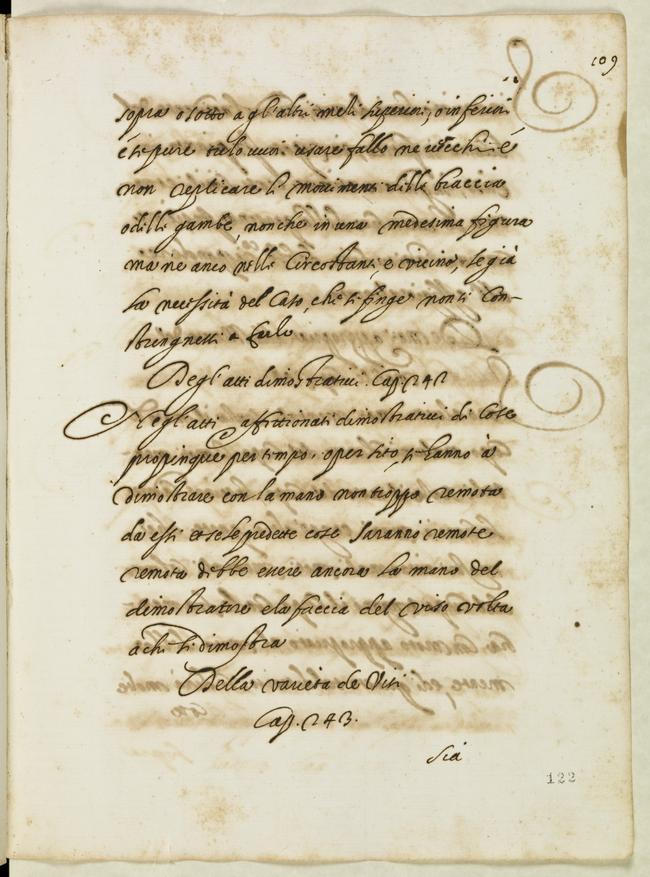 109
sopra o sotto a gl'altri meli superiori, o inferiori
é se pure tu lo vuoi usare fallo ne vecchi é
non replicare li movimenti delle braccia
o delle gambe, non che in una medesima figura
ma ne anco nelle Circostanti, e vicine, se già
La necessità del Caso, che si finge non ti Con-
stringnessi a farlo
Degl'atti dimostrativi. Cap. 242
Negl'atti affettionati dimostrativi di Cose
propinque per tempo, o per sito, si hanno à
dimostrare con la mano non troppo remota
da essi et se le predette cose saranno remote
remota debbe essere ancora La mano del
dimostratore e la faccia del viso volta
a chi si dimostra
Della varietà de Visi
Cap. 243.
Sia
122